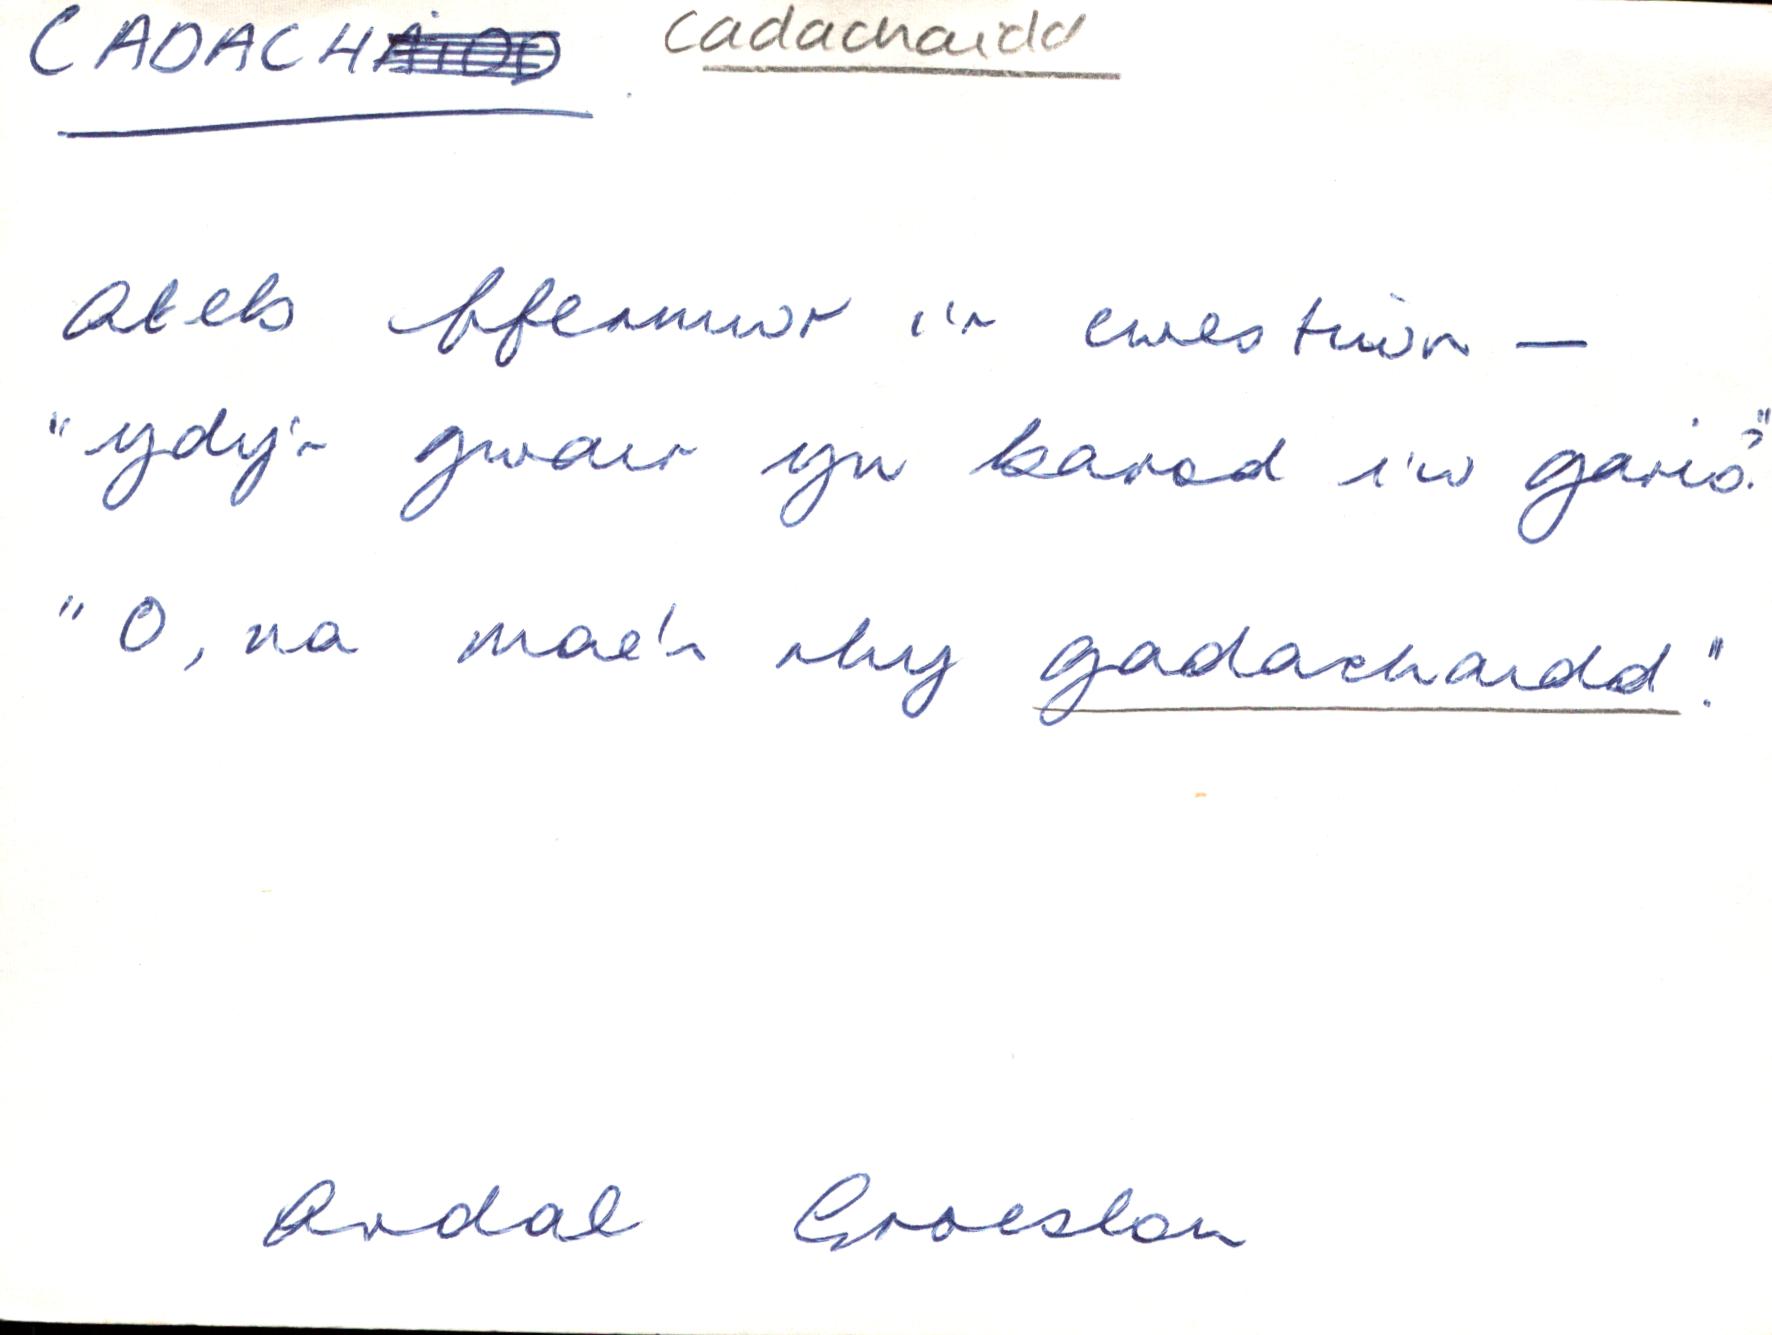 CADACHAIDD cadachaidd
Ateb ffermwr i'r cwestiwn —
"ydy'r gwair yn barod i'w gario?"
"O, na mae'n rhy gadachaidd".
Ardal Groeslon